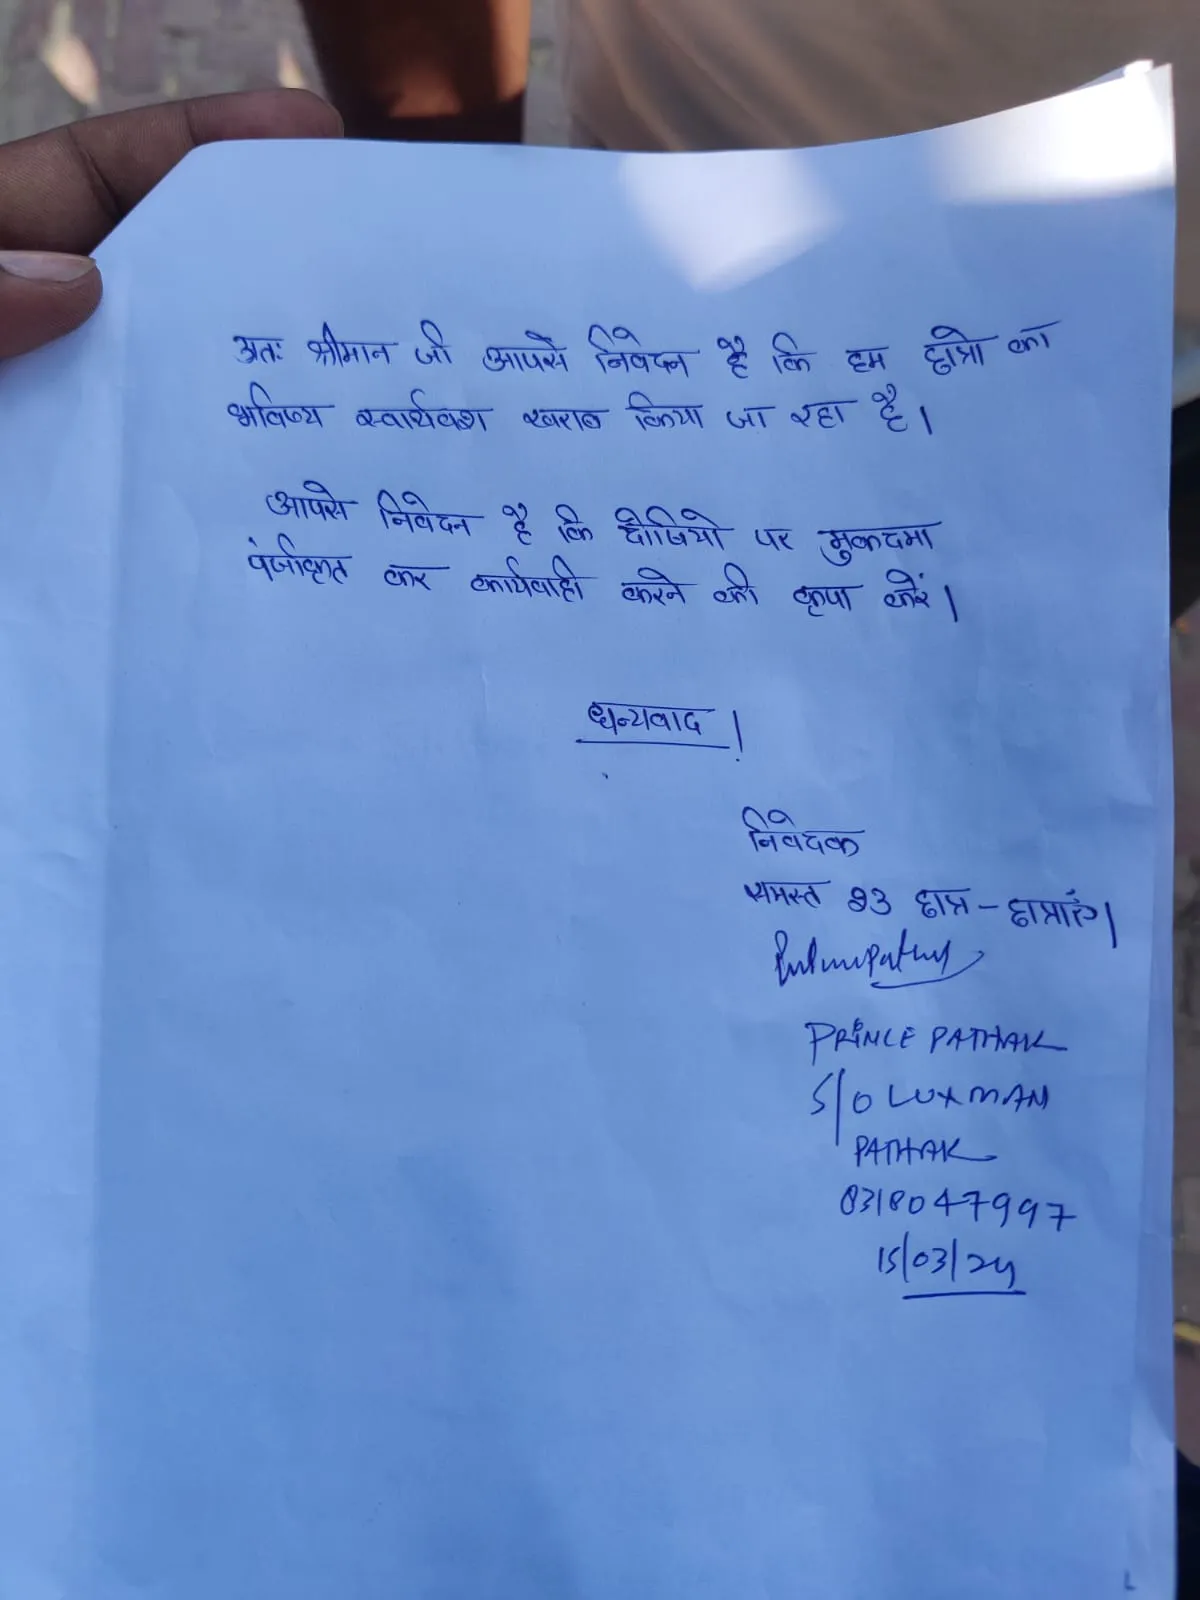 अतः श्रीमान जी आपसे निवेदन है कि हम छात्रो का
भविष्य स्वार्थवश खराब किया जा रहा है।
आपसे निवेदन है कि दोषियो पर मुकदमा
पंजीकृत कर कार्यवाही करने की कृपा करें।
धन्यवाद।
निवेदक
समस्त 93 छात्र-छात्राएँ।
PRINCE PATHAK
S/O LUXMAN
PATHAK
8318047997
15/03/24